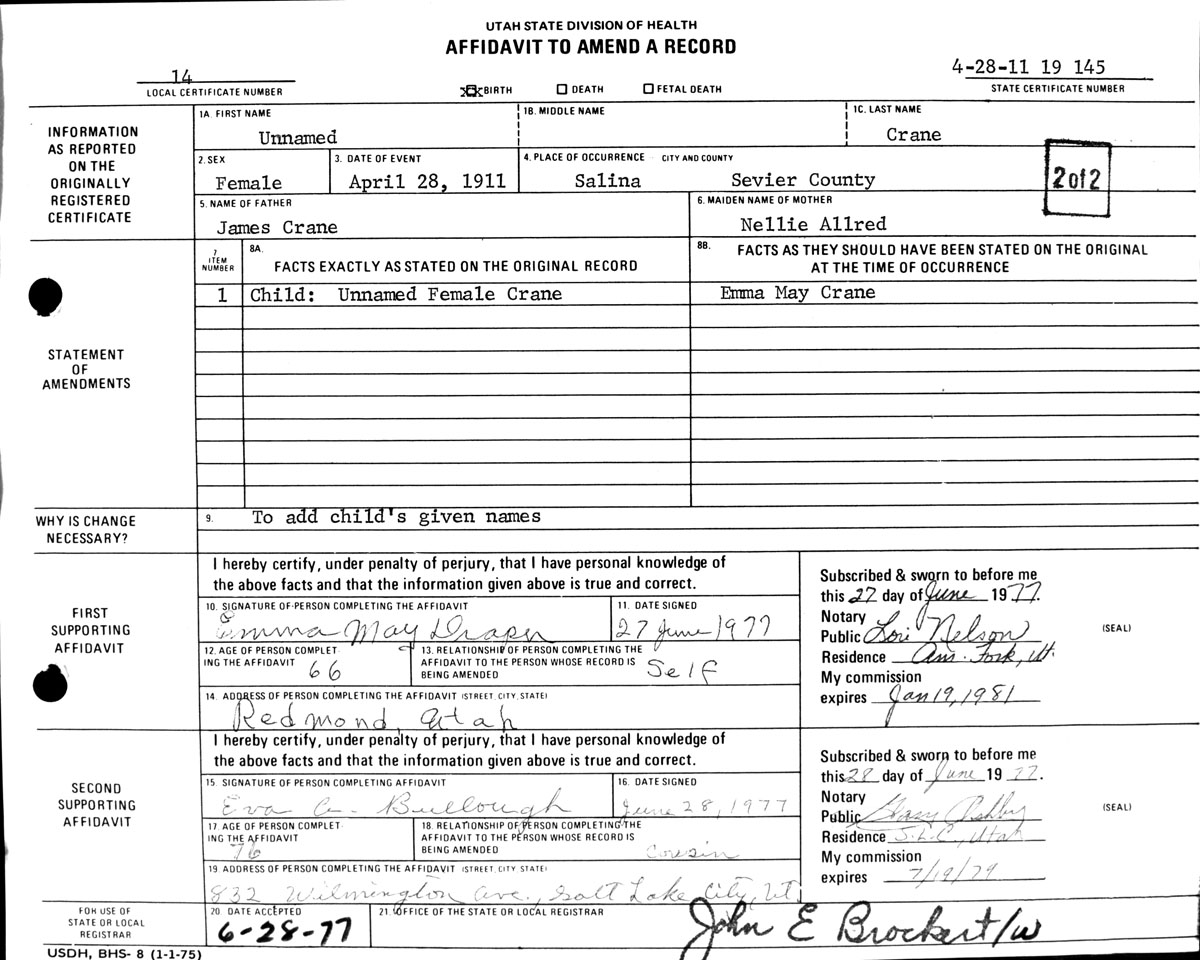 UTAH STATE DIVISION OF HEALTH
AFFIDAVIT TO AMEND A RECORD
14
LOCAL CERTIFICATE NUMBER
BIRTH DEATH FETAL DEATH
4-28-11 19 145
STATE CERTIFICATE NUMBER
INFORMATION
AS REPORTED
ON THE
ORIGINALLY
REGISTERED
CERTIFICATE
1A. FIRST NAME 1B. MIDDLE NAME 1C. LAST NAME
Unnamed Crane
2. SEX 3. DATE OF EVENT 4. PLACE OF OCCURRENCE - CITY AND COUNTY
Female April 28, 1911 Salina Sevier County
2 of 2
5. NAME OF FATHER 6. MAIDEN NAME OF MOTHER
James Crane Nellie Allred
STATEMENT
OF
AMENDMENTS
7. ITEM NUMBER
8A. FACTS EXACTLY AS STATED ON THE ORIGINAL RECORD
8B. FACTS AS THEY SHOULD HAVE BEEN STATED ON THE ORIGINAL
AT THE TIME OF OCCURRENCE
1 Child: Unnamed Female Crane Emma May Crane
WHY IS CHANGE
NECESSARY?
9. To add child's given names
FIRST
SUPPORTING
AFFIDAVIT
I hereby certify, under penalty of perjury, that I have personal knowledge of
the above facts and that the information given above is true and correct.
10. SIGNATURE OF PERSON COMPLETING THE AFFIDAVIT 11. DATE SIGNED
Emma May Draper 27 June 1977
12. AGE OF PERSON COMPLET-
ING THE AFFIDAVIT 66
13. RELATIONSHIP OF PERSON COMPLETING THE
AFFIDAVIT TO THE PERSON WHOSE RECORD IS
BEING AMENDED Self
14. ADDRESS OF PERSON COMPLETING THE AFFIDAVIT (STREET, CITY, STATE)
Redmond, Utah
Subscribed & sworn to before me
this 27 day of June 1977.
Notary
Public Lori Nelson
Residence Am. Fork, Ut.
My commission
expires Jan 19, 1981
(SEAL)
SECOND
SUPPORTING
AFFIDAVIT
I hereby certify, under penalty of perjury, that I have personal knowledge of
the above facts and that the information given above is true and correct.
15. SIGNATURE OF PERSON COMPLETING AFFIDAVIT 16. DATE SIGNED
Eva A. Bullough June 28, 1977
17. AGE OF PERSON COMPLET-
ING THE AFFIDAVIT
76
18. RELATIONSHIP OF PERSON COMPLETING THE
AFFIDAVIT TO THE PERSON WHOSE RECORD IS
BEING AMENDED cousin
19. ADDRESS OF PERSON COMPLETING THE AFFIDAVIT (STREET, CITY STATE)
832 Wilmington Ave., Salt Lake City, Ut.
Subscribed & sworn to before me
this 28 day of June 1977.
Notary
Public Gary Ashby
Residence S.L.C., Utah
My commission
expires 7/19/79
(SEAL)
FOR USE OF
STATE OR LOCAL
REGISTRAR
20. DATE ACCEPTED 21. OFFICE OF THE STATE OR LOCAL REGISTRAR
6-28-77 John E Brockert/w
USDH, BHS- 8 (1-1-75)